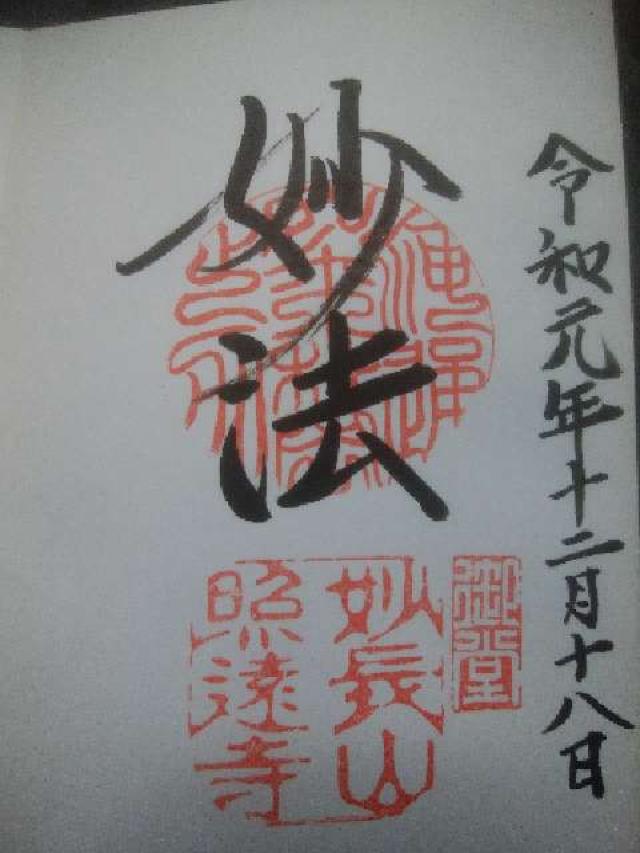 令和元年十二月十八日
妙法
御堂
妙長山
照遠寺